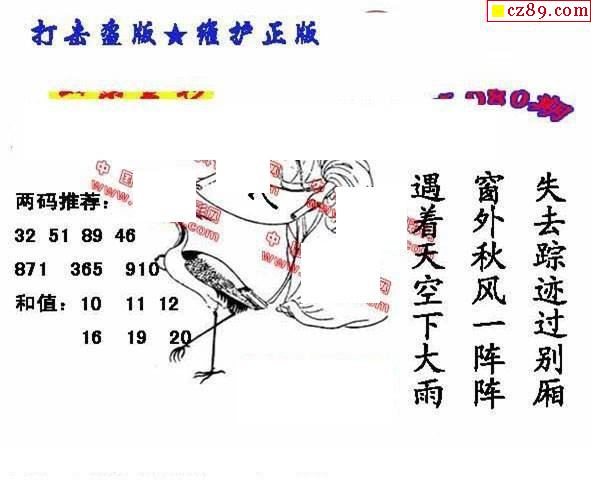 cz89.com
打击盗版★维护正版
两码推荐：
32 51 89 46
871 365 910
和值：10 11 12
16 19 20
失去踪迹过别厢
窗外秋风一阵阵
遇着天空下大雨